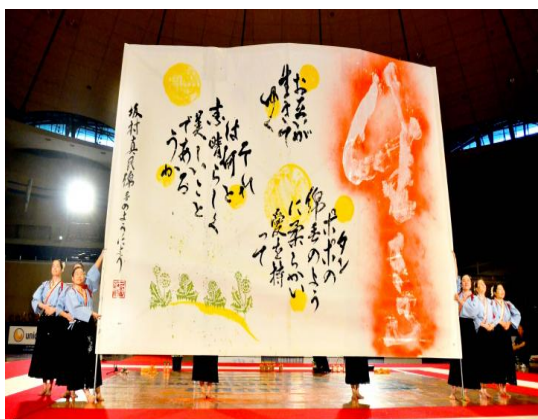 タン
ポポの
綿毛のよう
に柔らかい
愛を持
って
お互が
生きて
ゆく
それ
は何と
素晴らしく
美しいこと
であろ
うか
坂村真民綿毛のようにより